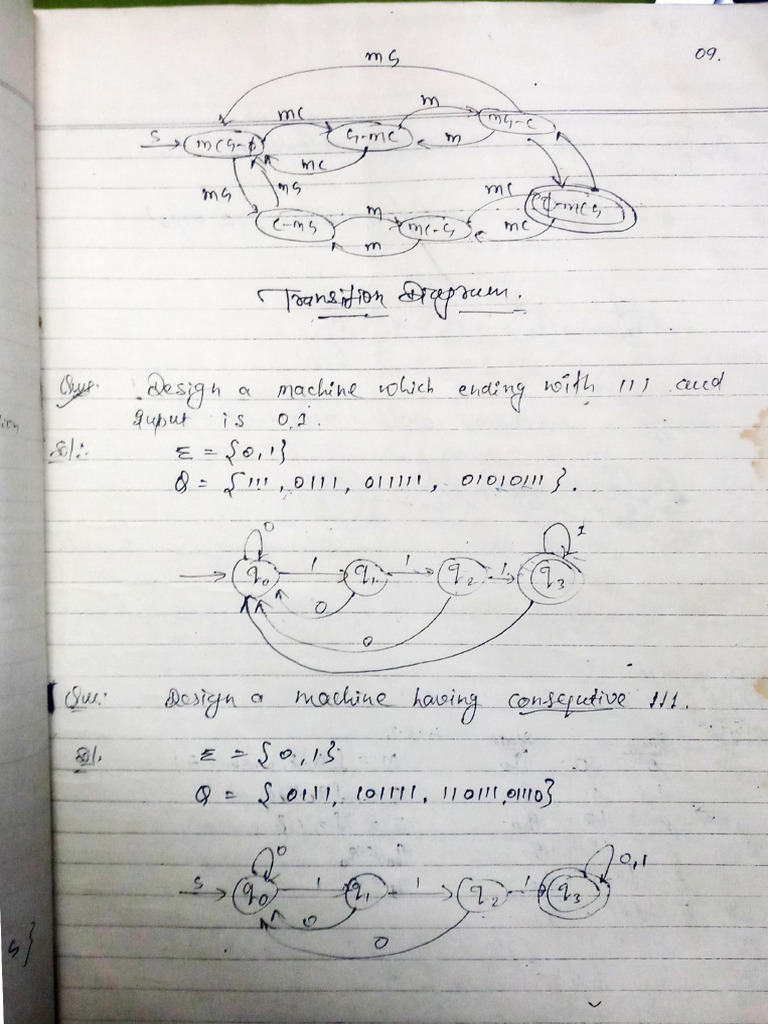 09.
mG
mc
m
S
mcG-ϕ
G-mc
mG-c
m
mc
mG
mG
mc
m
c-mG
mc-G
ϕ-mcG
m
mc
Transition Diagram.
Que. Design a machine which ending with 111 and
input is 0,1.
Sol:. Σ = {0,1}
Q = {111, 0111, 011111, 01010111}.
0
1
q0 1 q1 1 q2 1 q3
0
0
Que: Design a machine having consequtive 111.
Sol. Σ = {0,1}
Q = {0111, 101111, 110111, 0110}
0
0,1
S q0 1 q1 1 q2 1 q3
0
0
G}